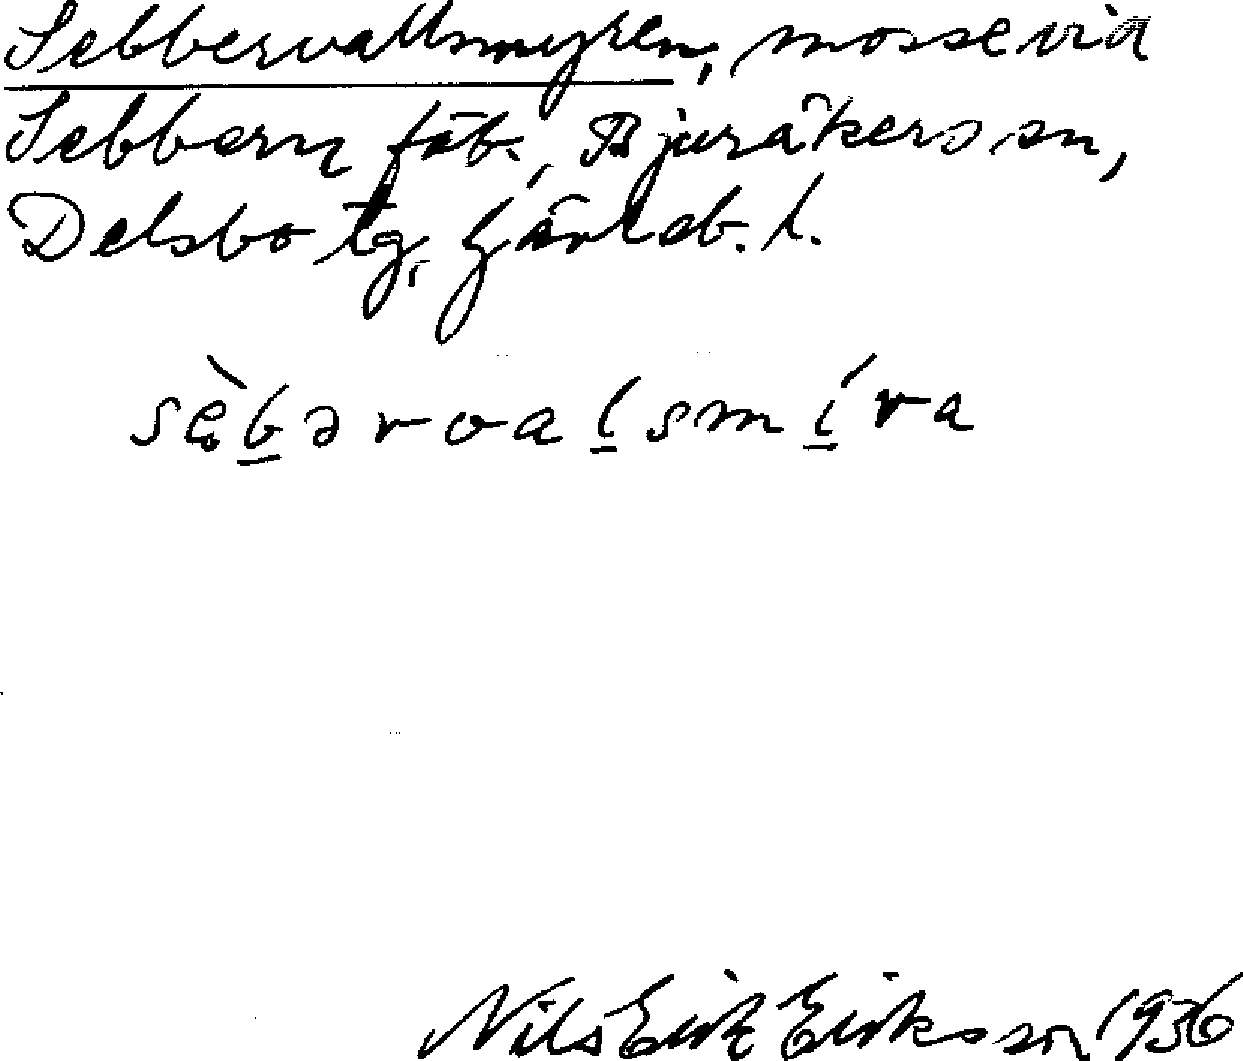 Sebbervallsmyren, mosse vid
Sebbern fäb., Bjuråkers sn,
Delsbo tg, Gävleb. l.
sè̢b̲ərval̲smí̲ra
Nils Erik Eriksson 1936